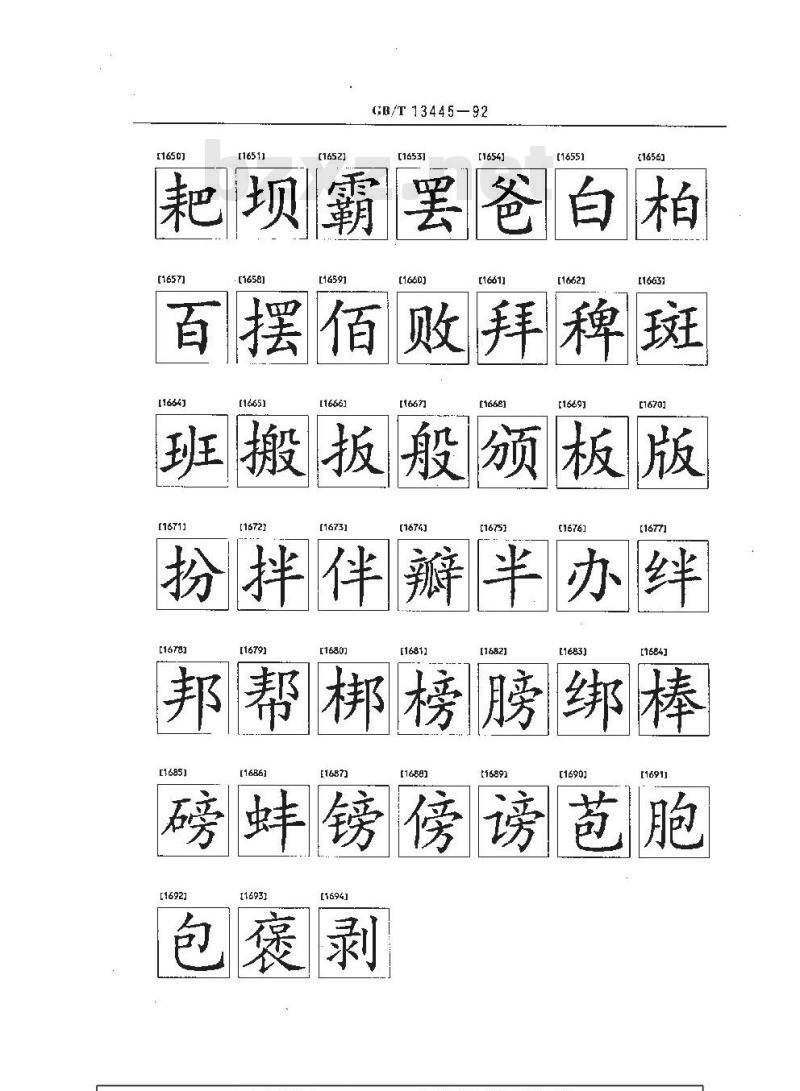 GB/T 13445—92
bzxz.net
[1650] [1651] [1652] [1653] [1654] [1655] [1656]
耙 坝 霸 罢 爸 白 柏
[1657] [1658] [1659] [1660] [1661] [1662] [1663]
百 摆 佰 败 拜 稗 斑
[1664] [1665] [1666] [1667] [1668] [1669] [1670]
班 搬 扳 般 颁 板 版
[1671] [1672] [1673] [1674] [1675] [1676] [1677]
扮 拌 伴 瓣 半 办 绊
[1678] [1679] [1680] [1681] [1682] [1683] [1684]
邦 帮 梆 榜 膀 绑 棒
[1685] [1686] [1687] [1688] [1689] [1690] [1691]
磅 蚌 镑 傍 谤 苞 胞
[1692] [1693] [1694]
包 褒 剥